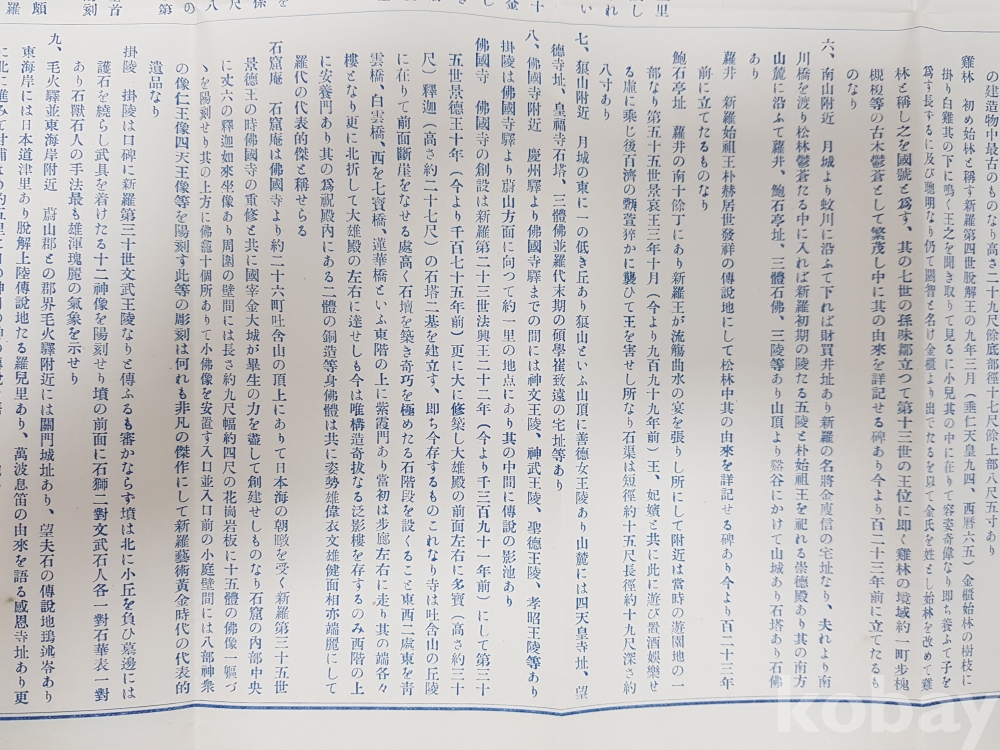 の建造物中最古のものなり高さ二十九尺餘底部徑十七尺餘上部八尺五寸あり
雞林　初め始林と稱す新羅第四世脫解王の九年三月（垂仁天皇九四、西曆六五）金櫃始林の樹枝に
掛り白雞其の下に鳴く王之を聞き取りて見るに小兒其の中に在りて容姿奇偉なり即ち養ふて子を
爲す長ずるに及び聰明なり仍て閼智と名け金櫃より出でたるを以て金氏を姓とし始林を改めて雞
林と稱し之を國號と爲す、其の七世の孫味鄒立つて第十三世の王位に即く雞林の境域約一町步槐
槻椶等の古木鬱蒼として繁茂し中に其の由來を詳記せる碑あり今より百二十三年前に立てたるも
のなり
六、南山附近　月城より蚊川に沿ふて下れば財買井址あり新羅の名將金庾信の宅址なり、夫れより南
川橋を渡り松林鬱蒼たる中に入れば新羅初期の陵たる五陵と朴始祖王を祀れる崇德殿あり其の南方
山麓に沿ふて蘿井、鮑石亭址、三體石佛、三陵等あり山頂より谿谷にかけて山城あり石塔あり石佛
あり
蘿井　新羅始祖王朴赫居世發祥の傳說地にして松林中其の由來を詳記せる碑あり今より百二十三年
前に立てたるものなり
鮑石亭址　蘿井の南十餘丁にあり新羅王が流觴曲水の宴を張りし所にして附近は當時の遊園地の一
部なり第五十五世景哀王三年十月（今より九百九十九年前）王、妃嬪と共に此に遊び置酒娛樂せ
る虛に乘じ後百濟の甄萱猝かに襲ひて王を害せし所なり石渠は短徑約十五尺長徑約十九尺深さ約
八寸あり
七、狼山附近　月城の東に一の低き丘あり狼山といふ山頂に善德女王陵あり山麓には四天皇寺址、望
德寺址、皇福寺石塔、三體佛並羅代末期の碩學崔致遠の宅址等あり
八、佛國寺附近　慶州驛より佛國寺驛までの間には神文王陵、神武王陵、聖德王陵、孝昭王陵等あり
掛陵は佛國寺驛より蔚山方面に向つて約一里の地点にあり其の中間に傳說の影池あり
佛國寺　佛國寺の創設は新羅第二十三世法興王二十二年（今より千三百九十一年前）にして第三十
五世景德王十年（今より千百七十五年前）更に大に修築し大雄殿の前面左右に多寶（高さ約三十
尺）釋迦（高さ約二十七尺）の石塔二基を建立す、即ち今存するものこれなり寺は吐含山の丘陵
に在りて前面斷崖をなせる處高く石壇を築き奇巧を極めたる石階段を設くること東西二處東を靑
雲橋、白雲橋、西を七寶橋、蓮華橋といふ東階の上に紫霞門あり當初は步廊左右に走り其の端各々
樓となり更に北折して大雄殿の左右に達せしも今は唯構造奇拔なる泛影樓を存するのみ西階の上
に安養門あり其の爲祝殿內にある二體の銅造等身佛體は共に姿勢雄偉衣文雄健面相亦端麗にして
羅代の代表的傑と稱せらる
石窟庵　石窟庵は佛國寺より約二十六町吐含山の頂上にあつて日本海の朝暾を受く新羅第三十五世
景德王の時佛國寺の重修と共に國宰金大城が畢生の力を盡して創建せしものなり石窟の內部中央
に丈六の釋迦如來坐像あり周圍の壁間には長さ約九尺幅約四尺の花崗岩板に十五體の佛像一軀づ
ゝを陽刻せり其の上方に佛龕十個所ありて小佛像を安置す入口並入口前の小庭壁間には八部神衆
の像仁王像四天王像等を陽刻す此等の彫刻は何れも非凡の傑作にして新羅藝術黃金時代の代表的
遺品なり
掛陵　掛陵は口碑に新羅第三十世文武王陵なりと傳ふるも審かならず墳は北に小丘を負ひ墓邊には
護石を繞らし武具を着けたる十二神像を陽刻せり墳の前面に石獅二對文武石人各一對石華表一對
あり石獸石人の手法最も雄渾瑰麗の氣象を示せり
九、毛火驛並東海岸附近　蔚山郡との郡界毛火驛附近には關門城址あり、望夫石の傳說地鵄述岺あり
東海岸には日本道津里あり脫解上陸傳說地たる羅兒里あり、萬波息笛の由來を語る感恩寺址あり更